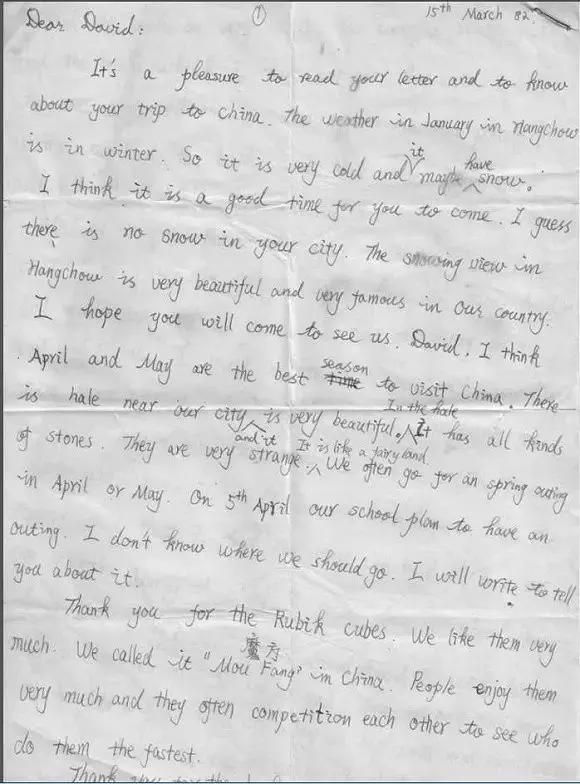 ①
15th March 82
Dear David:
It's a pleasure to read your letter and to know
about your trip to China. The weather in January in Hangchow
is in winter. So it is very cold and it maybe have snow.
I think it is a good time for you to come. I guess
there is no snow in your city. The snowing view in
Hangchow is very beautiful and very famous in our country.
I hope you will come to see us. David, I think
April and May are the best season to visit China. There
is hale near our city and it is very beautiful. In the hale It has all kinds
of stones. They are very strange. It is like a fairy land. We often go for an spring outing
in April or May. On 5th April our school plan to have an
outing. I don't know where we should go. I will write to tell
you about it.
Thank you for the Rubik cubes. We like them very
much. We called it "Mou Fang" 魔方 in China. People enjoy them
very much and they often competition each other to see who
do them the fastest.
Thank you for the